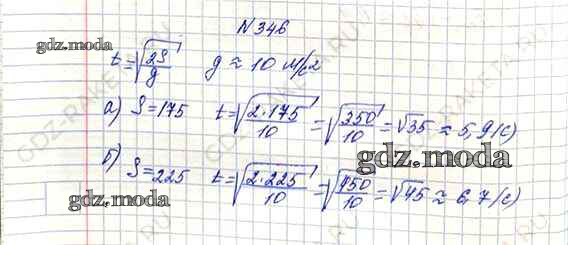 N 346
gdz.moda
t = √(2S/g) g ≈ 10 м/с²
а) S = 175 t = √(2·175/10) = √(350/10) = √35 ≈ 5,9 (с)
gdz.moda
б) S = 225 t = √(2·225/10) = √(450/10) = √45 ≈ 6,7 (с)
gdz.moda